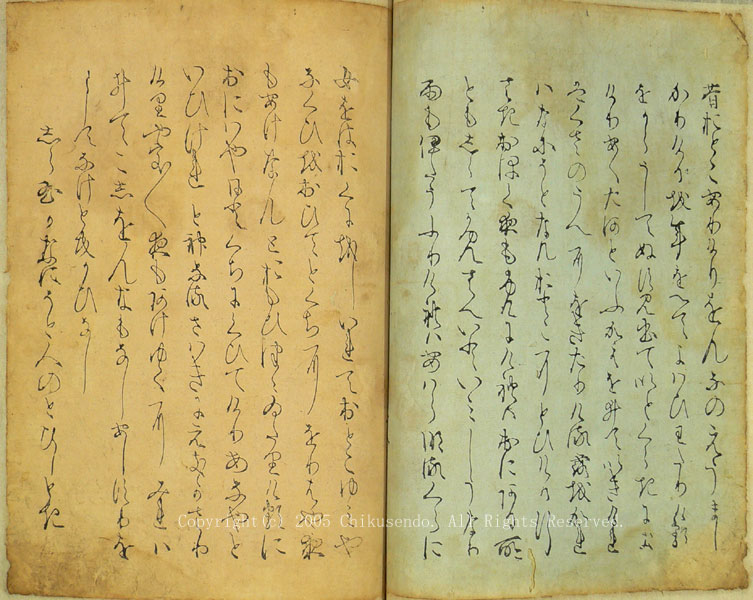 昔おとこありけりをんなのえうまし
かりけるを年をへてよはひわたりける
をからうしてぬすみ出ていとくらきにき
けりあくた河といふかはをゐていきけれ
くさのうへにをきたりける露をかれ
はなにそとなんおとこにとひける行
さきおほく夜もふけにけれはおにある所
ともしらてかみさへいといみしうなり
雨もいたうふりけれはあはらなるくらに
女をはおくにをしいれておとこゆみや
なくひをおひてとくちにをりはや夜
もあけなんとおもひつゝゐたりけるに
おにはやひとくちにくひてけりあなやと
いひけれと神なるさはきにえきかさり
けりやう〱夜もあけゆくにみれは
ゐてこしをんなもなしあしすりを
してなけともかひなし
しら玉かなにそと人のとひしとき
Copyright (c) 2005 Chikusendo. All Rights Reserved.